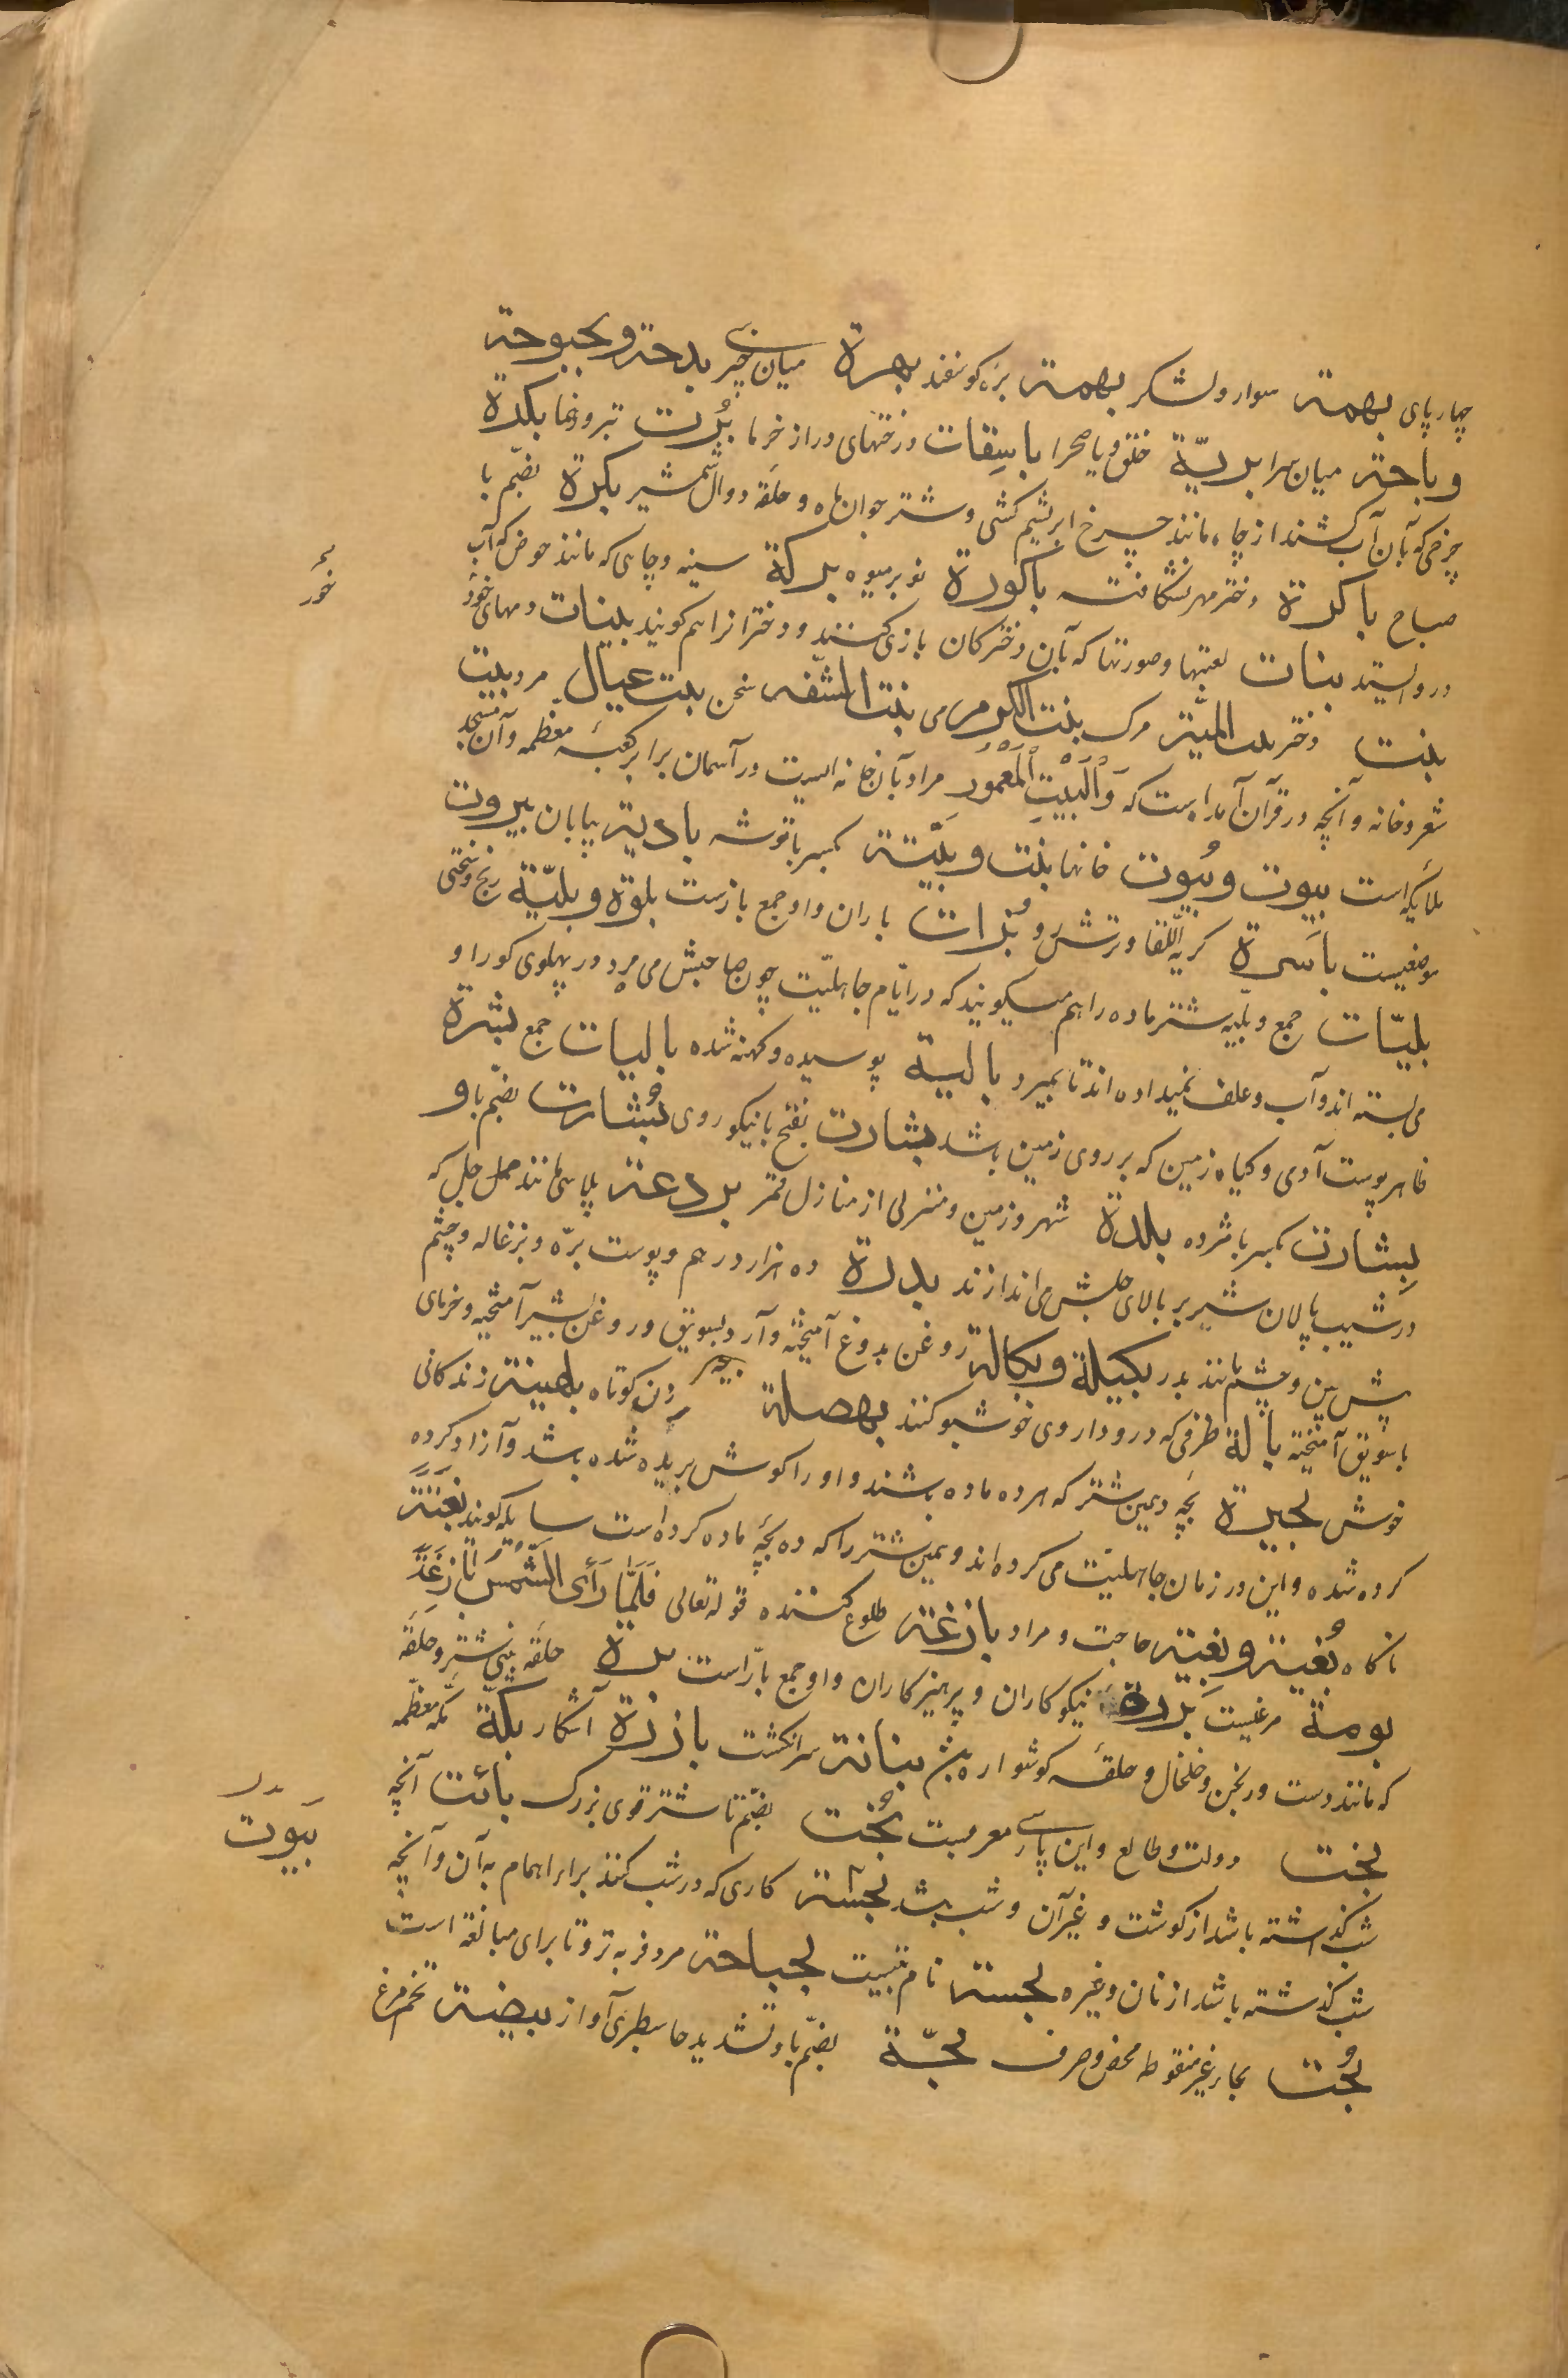 چهارپای بهمة سوار و لشکر بهمة بره کوسفند بهرة میان چیزی بدحة و بحبوحة
و باحة میان سرا بریّة خلق و یا صحرا باسِقات درختهای دراز خرما بُرت تبر و رنما بکدة
چرخی که بآن آب کشند از چاه مانند چرخ ابریشم کشی و شتر جوان ماده و حلقه دوال شمشیر بکرة بضمّ با
صباح باکرة دختر مهر نشکافته باکورة نوبر میوه برکة سینه و چاهی که مانند حوض که آب
درو ایستد بنات لعبتها و صورتها که بآن دخترکان بازی کنند و دخترانرا هم کویند بلینات دمهای خور
بنت دختر بنت المنیّة مرک بنت الکرم می بنت الشفه سخن بنت عیال مرد بیت
شعر و خانه و آنچه در قرآن آمده است که وَالْبَیْتِ الْمَعْمُورِ مراد بآن خانه ایست در آسمان برابر کعبۀ معظمه و آن مسجد
ملایکه است بیوت و بُیوت خانها بنت و بتیّة بکسر با توشه بادیة بیابان بیروت
موضعیست باسَرة کریه اللّقا و ترش رو بُرات باران و او جمع بازست بلوة و بلیّة رنج و سختی
بلیّات جمع و بلیّه شتر ماده را هم میکویند که در ایّام جاهلیّت چون صاحبش می مرد در پهلوی کور او
می بسته اند و آب و علف نمیداده اند تا بمیرد بالیة پوسیده و کهنه شده بالیات جمع بشرة
ظاهر پوست آدمی و کیاه زمین که بر روی زمین باشد بشارت بفتح با نیکو روی بُشارت بضمّ با و
بِشارت بکسر با مژده بلدة شهر و زمین و منزلی از منازل قمر بردعة پلاسی مانند حمل جل که
در شیب پالان شتر بر بالای جلش می اندازند بدرة ده هزار درهم و پوست برّه و بزغاله و چشم
پیش بین و چشم مانند بدر بکیلة و بکالة روغن بدوغ آمیخته و آرد بسویق و روغن بشیر آمیخته و خرمای
با سویق آمیخته بالة ظرفی که درو داروی خوشبو کنند بهصلة زن کوتاه بلهینة زندکانی
خوش بحیرة بچۀ دیمین شتر که هر ده ماده باشند و او را کوش بریده شده باشد و آزاد کرده
کرده شده و این در زمان جاهلیّت می کرده اند و همین شتر را که ده بچه ماده کرده است سایبه کویند بَغتَةً
ناکاه بُغیة و بِغیة حاجت و مراد بازغة طلوع کننده قوله تعالی فَلَمَّا رَأَی الشَّمْسَ بَازِغَةً
بومة مرغیست بَررة نیکوکاران و پرهیزکاران و او جمع بارّ است برة حلقه بینی شتر و حلقه
که مانند دست ورنجن و خلخال و حلقه کوشواره بنانة سرانکشت بارزة آشکار بکّة مکّه معظّمه
بخت دولت و طالع و این پارسی معربست بُخت بضمّ با شتر قوی بزرک بائت آنچه
شب کذاشته باشد از کوشت و غیر آن و شب باشد کاری که در شب کنند برابر اهمام به آن و آنچه
شب کذشته باشد از نان و غیره نام بتیست بحباحة مرد فربه تر و تا برای مبالغه است
بُحت بحاء غیر منقوطه محض و صرف بحّة بضمّ با و تشدید حا سطبری آواز بیضة تخم مرغ
خور
بدل
بَیّوت